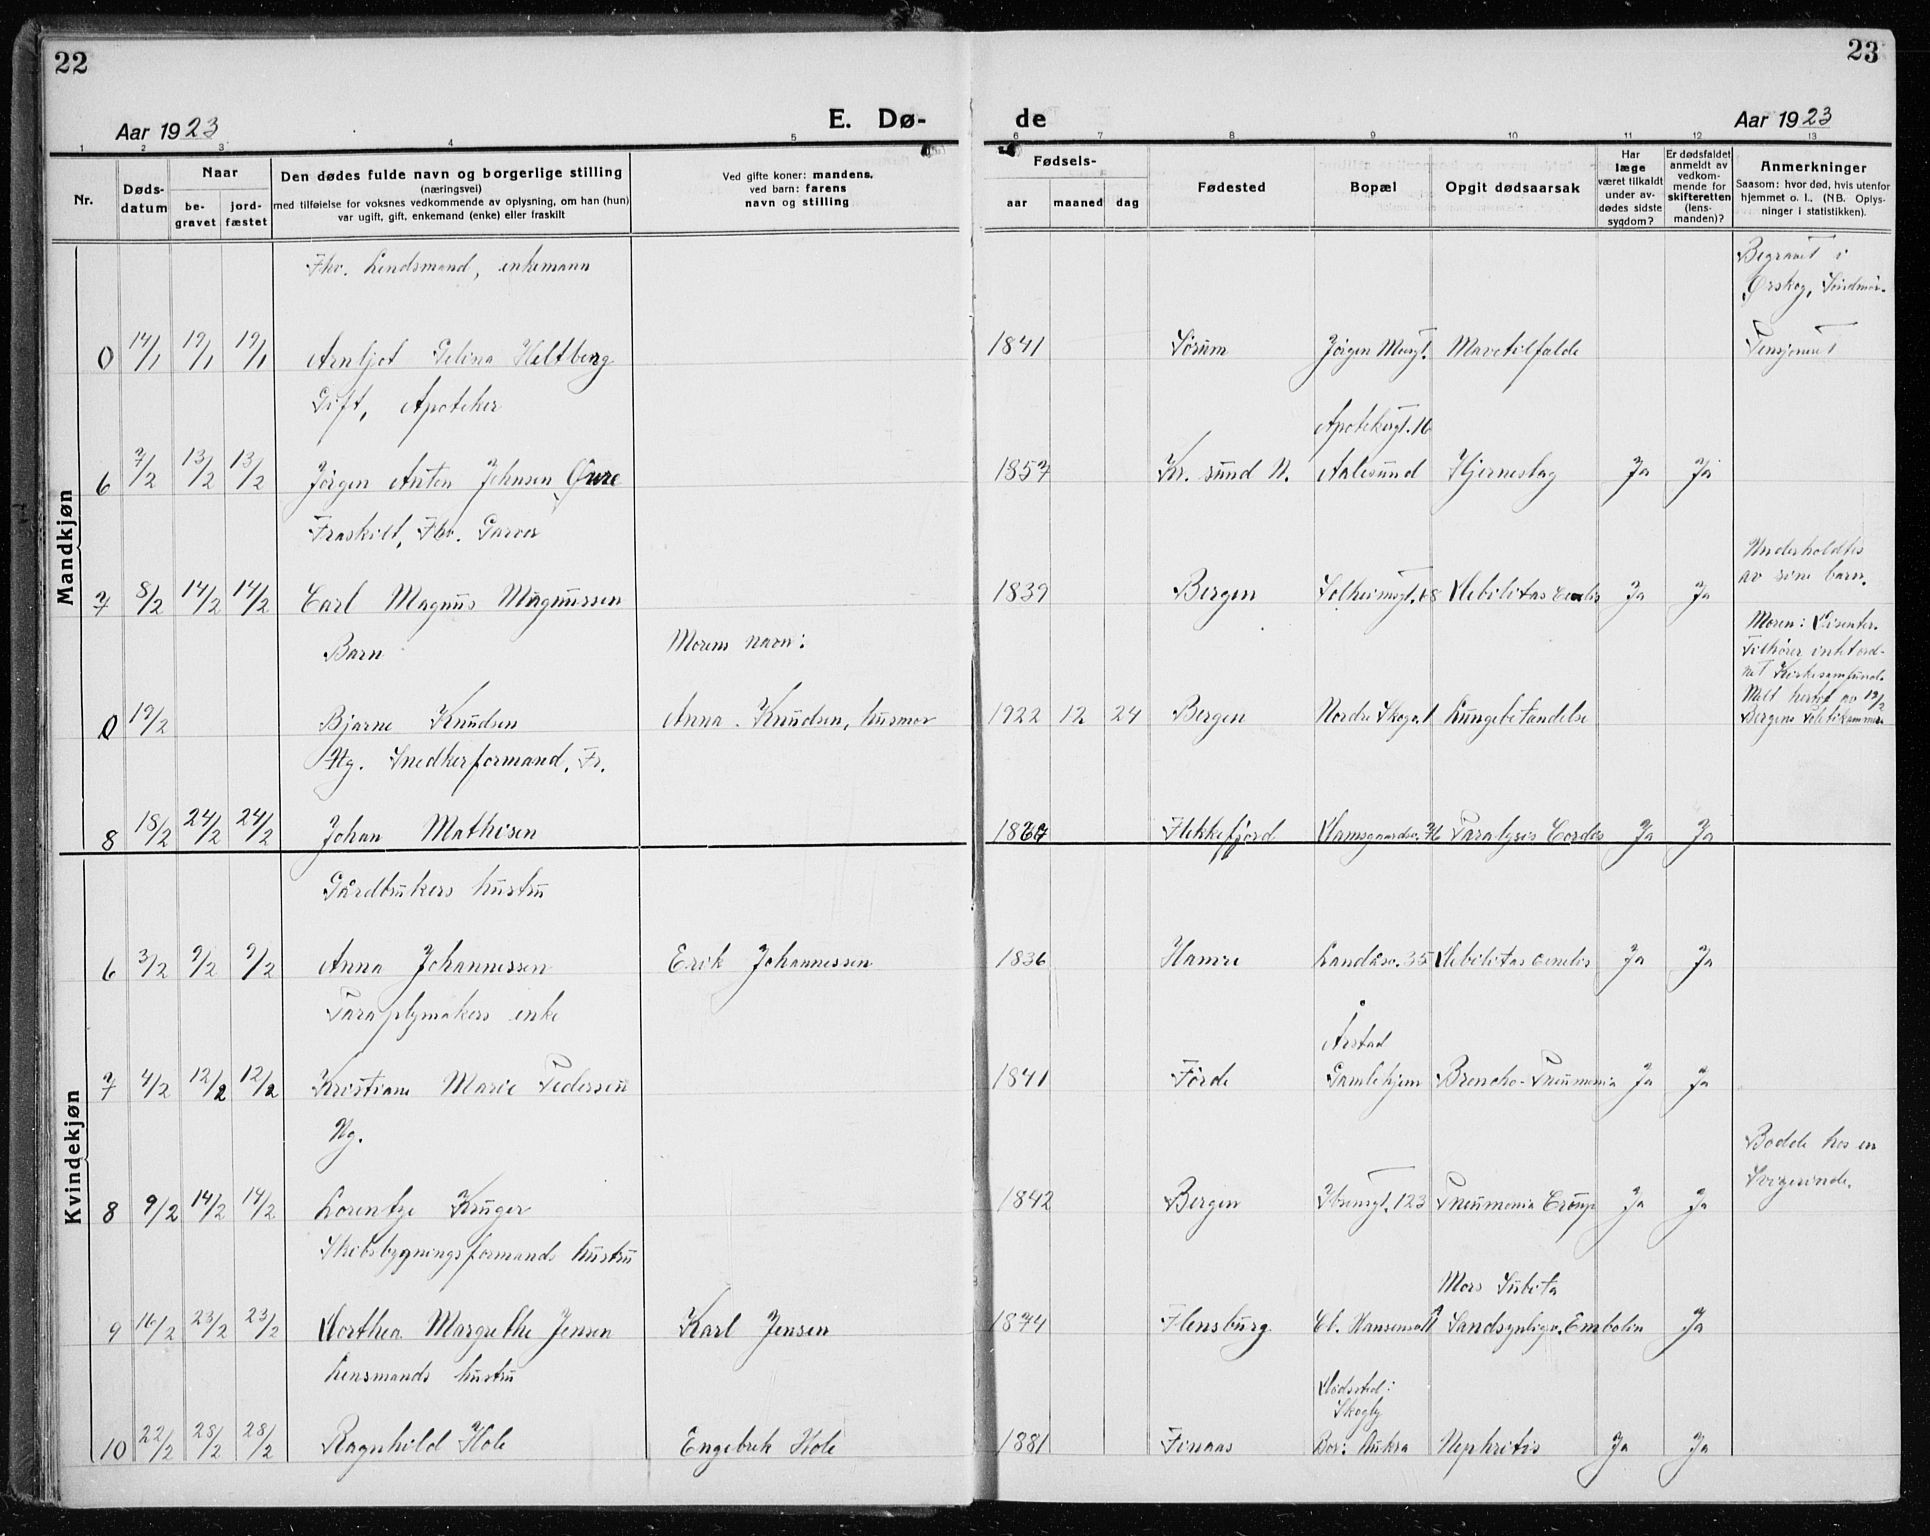 22
23
Aar 1923
E. Dø-
de
Aar 1923
1 2 3 4 5 6 7 8 9 10 11 12 13
Nr.
Døds-
datum
Naar
be-
gravet
jord-
fæstet
Den dødes fulde navn og borgerlige stilling
(næringsvei)
med tilføielse for voksnes vedkommende av oplysning, om han (hun)
var ugift, gift, enkemand (enke) eller fraskilt
Ved gifte koner: mandens,
ved barn: farens
navn og stilling
Fødsels-
aar maaned dag
Fødested
Bopæl
Opgit dødsaarsak
Har
læge
været tilkaldt
under av-
dødes sidste
sygdom?
Er dødsfaldet
anmeldt av
vedkom-
mende for
skifteretten
(lens-
manden)?
Anmerkninger
Saasom: hvor død, hvis utenfor
hjemmet o. l., (NB. Oplys-
ninger i statistikken).
Mandkjøn
Fhv. Lendsmand, enkemann
Begravet i
Ørskog, Söndmör.
0 14/1 19/1 19/1 Arnljot Heltberg 1841 Sörum Jörgen Mavetilfælde
Gift, Apoteker
Apotekergt. 16
6 7/2 13/2 13/2 Jörgen Anton Johnsen Øwre 1857 Kr. sund N. Aalesund Hjerneslag Ja Ja
Fraskilt, Fhv. Garver
Underholdtes
av sine barn.
7 8/2 14/2 14/2 Carl Magnus Magnussen 1839 Bergen Solheimsgt. 48 Debilitas Ja Ja
Barn
Morens navn:
Moren: Disenter.
Tilhører intet ord-
net Kirkesamfund.
0 19/2 Bjarne Knudsen Anna Knudsen, husmor 1922 12 24 Bergen Nordre Skogv. 1 Lungebetændelse
Melt hertil av 19/2
Bergens Politikammer
Ug. Snedkerformand. Fr.
8 18/2 24/2 24/2 Johan Mathisen Flekkefjord Paralysis Cordis Ja Ja
Kvindekjøn
Gårdbrukers hustru
6 3/2 9/2 9/2 Anna Johannessen Erik Johannessen 1836 Hamre Landåsv. 35 Debilitas senilis Ja Ja
Paraplymakers enke
Årstad
7 4/2 12/2 12/2 Kristiane Marie Pedersen 1841 Förde Gamlehjem Broncho-Pneumonia Ja Ja
Ug.
Bodde hos en
Svigerinde.
8 9/2 14/2 14/2 Lorentze Krüger 1842 Bergen Ibsensgt. 123 Pneumonia Croup Ja Ja
Skibsbygningsformands hustru
Mors Subita
9 16/2 23/2 23/2 Dorthea Margrethe Jensen Karl Jensen 1874 Flensburg Sandsynligv. Emboli Ja
Lensmands hustru
Dödssted:
Skogly
10 22/2 28/2 28/2 Ragnhild Hole Engebrik Hole 1881 Finaas Bor: Aukra Nephritis Ja Ja